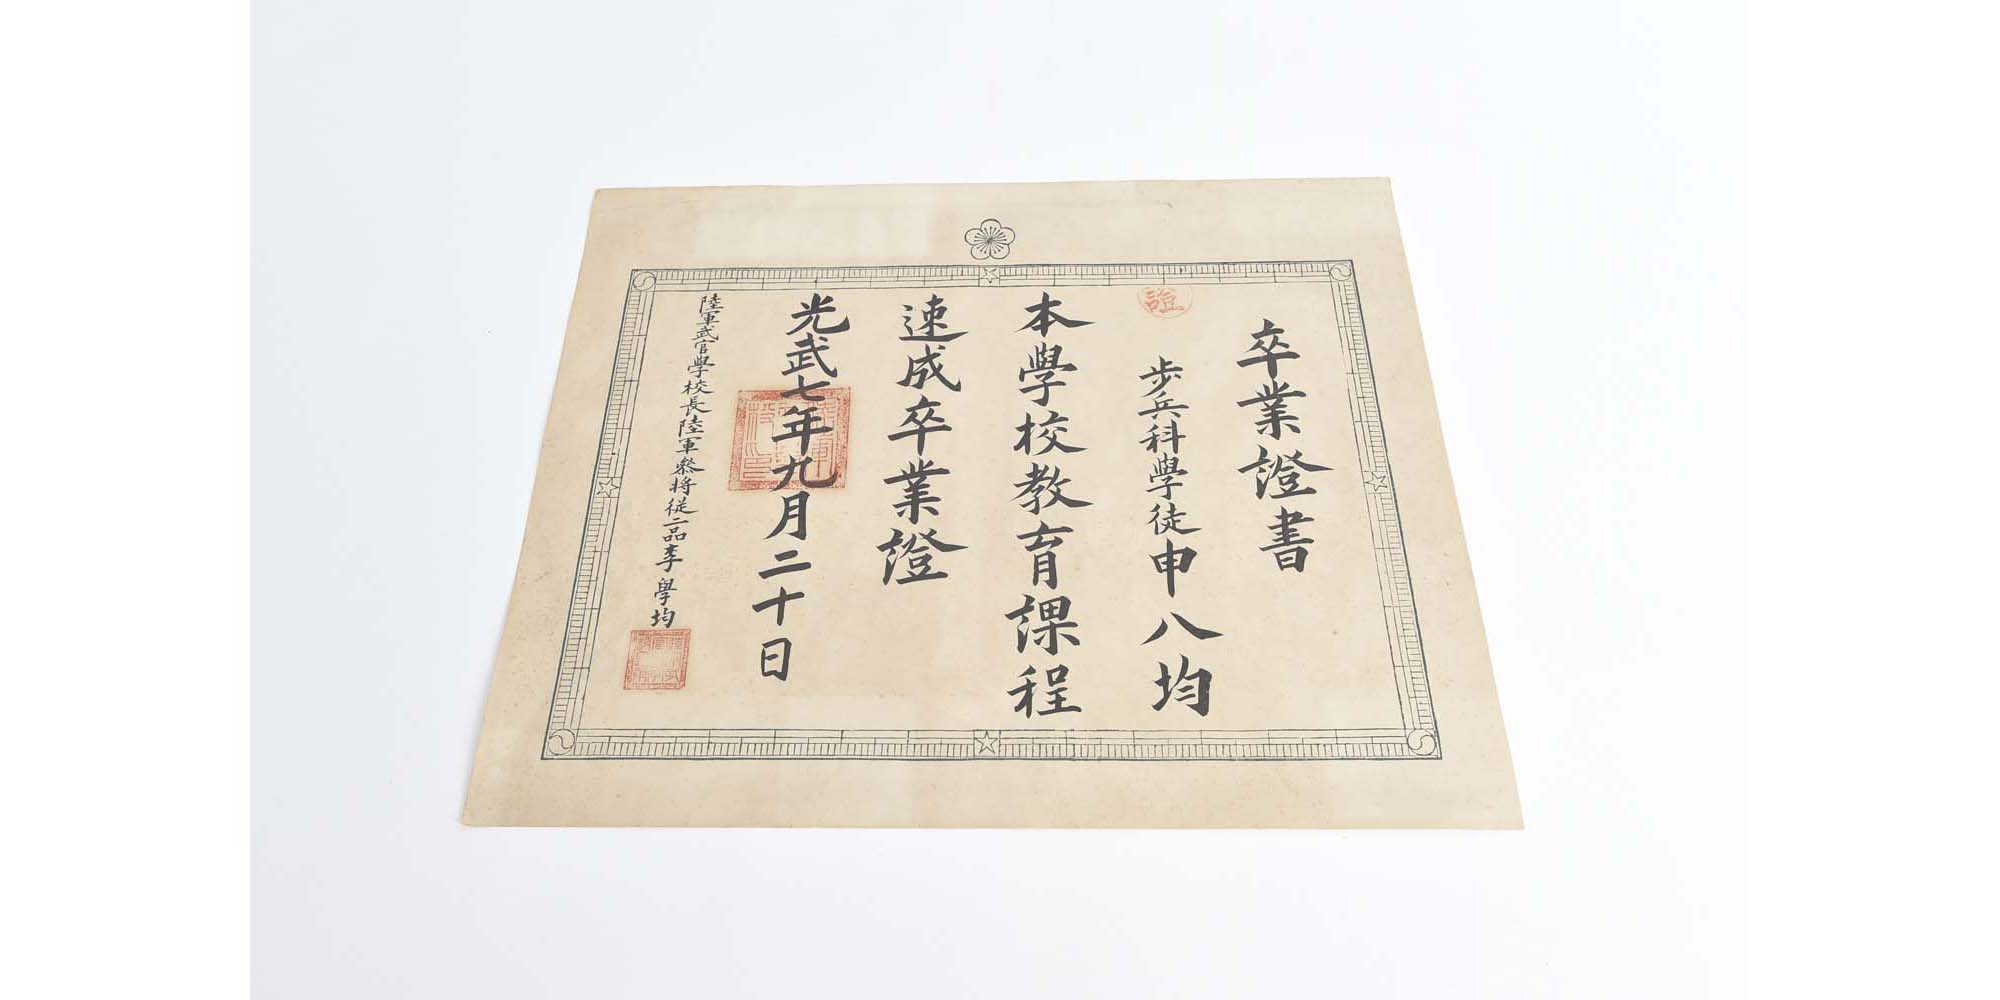 卒業證書
步兵科學徒申八均
本學校敎育課程
速成卒業證
光武七年九月二十日
陸軍武官學校長陸軍叅將從二品李學均
證